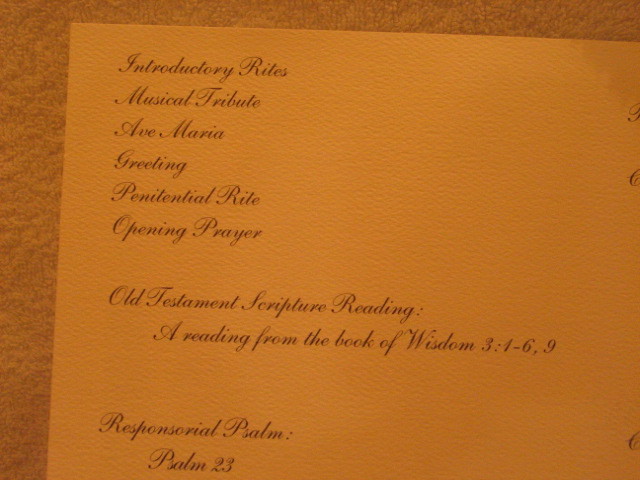 Introductory Rites
Musical Tribute
Ave Maria
Greeting
Penitential Rite
Opening Prayer
Old Testament Scripture Reading:
A reading from the book of Wisdom 3:1-6, 9
Responsorial Psalm:
Psalm 23